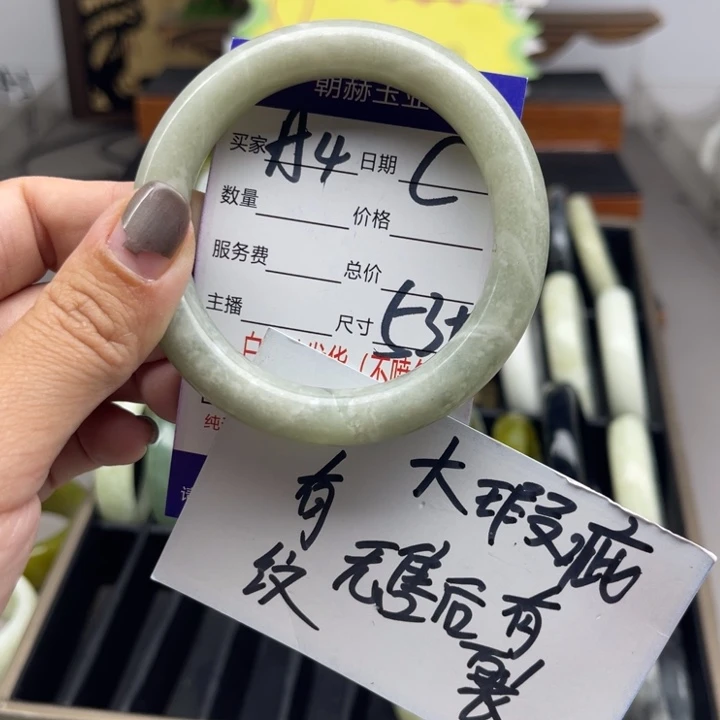 朝赫玉业
买家 A4 日期 C
数量 价格
服务费 总价
主播 尺寸 53+
大瑕疵
有纹
无售后有裂